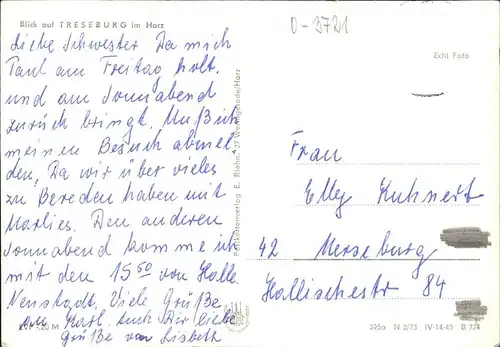 Blick auf TRESEBURG im Harz
Liebe Schwester Da mich
Paul am Freitag holt.
und am Sonnabend
zurück bringt. Muß ich
meinen Besuch abmel
den, Da wir über vieles
zu Bereden haben mit
Marlies. Den anderen
Sonnabend komme ich
mit den 15⁵⁰ von Halle
Neustadt. Viele Grüße
an Karl. auch Dir liebe
Grüße von Lisbeth
0-3721
Echt Foto
Frau
Elly Kuhnert
42 Merseburg
Hallischestr 84
595a N 2/73 IV-14-45 B 724